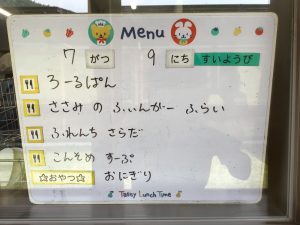 Menu
7 がつ 9 にち すいようび
ろーるぱん
ささみ の ふぃんがー ふらい
ふれんち さらだ
こんそめ すーぷ
☆おやつ☆ おにぎり
Tasty Lunch Time